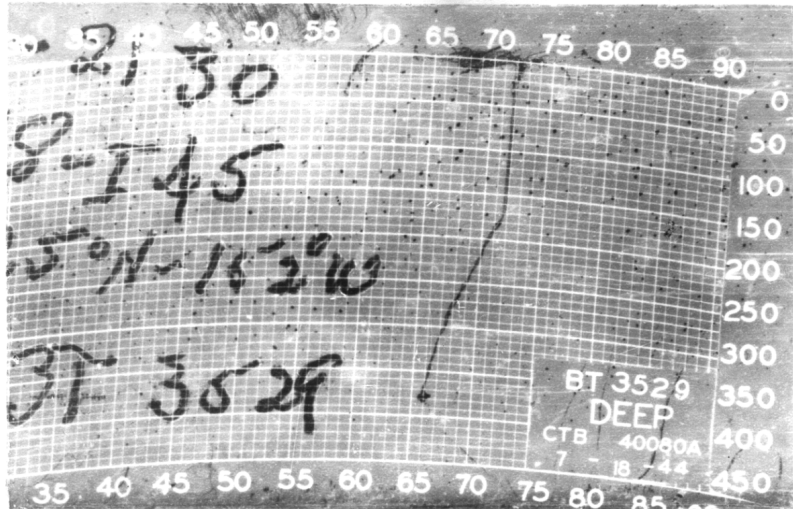 35 40 45 50 55 60 65 70 75 80 85 90
21 30
8-I 45
5°N-152°W
BT 3529
0
50
100
150
200
250
300
350
400
450
BT 3529
DEEP
CTB 40080A
7 - 18 - 44
35 40 45 50 55 60 65 70 75 80 85